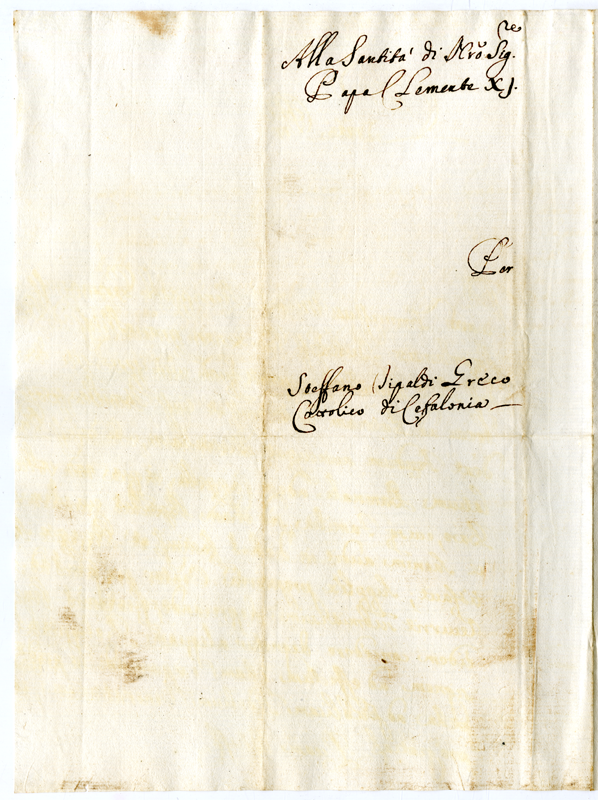 Alla Santità di Nrõ Sig.re
Papa Clemente XJ.
Per
Steffano Sipaldi Greco
Cattolico di Cefalonia